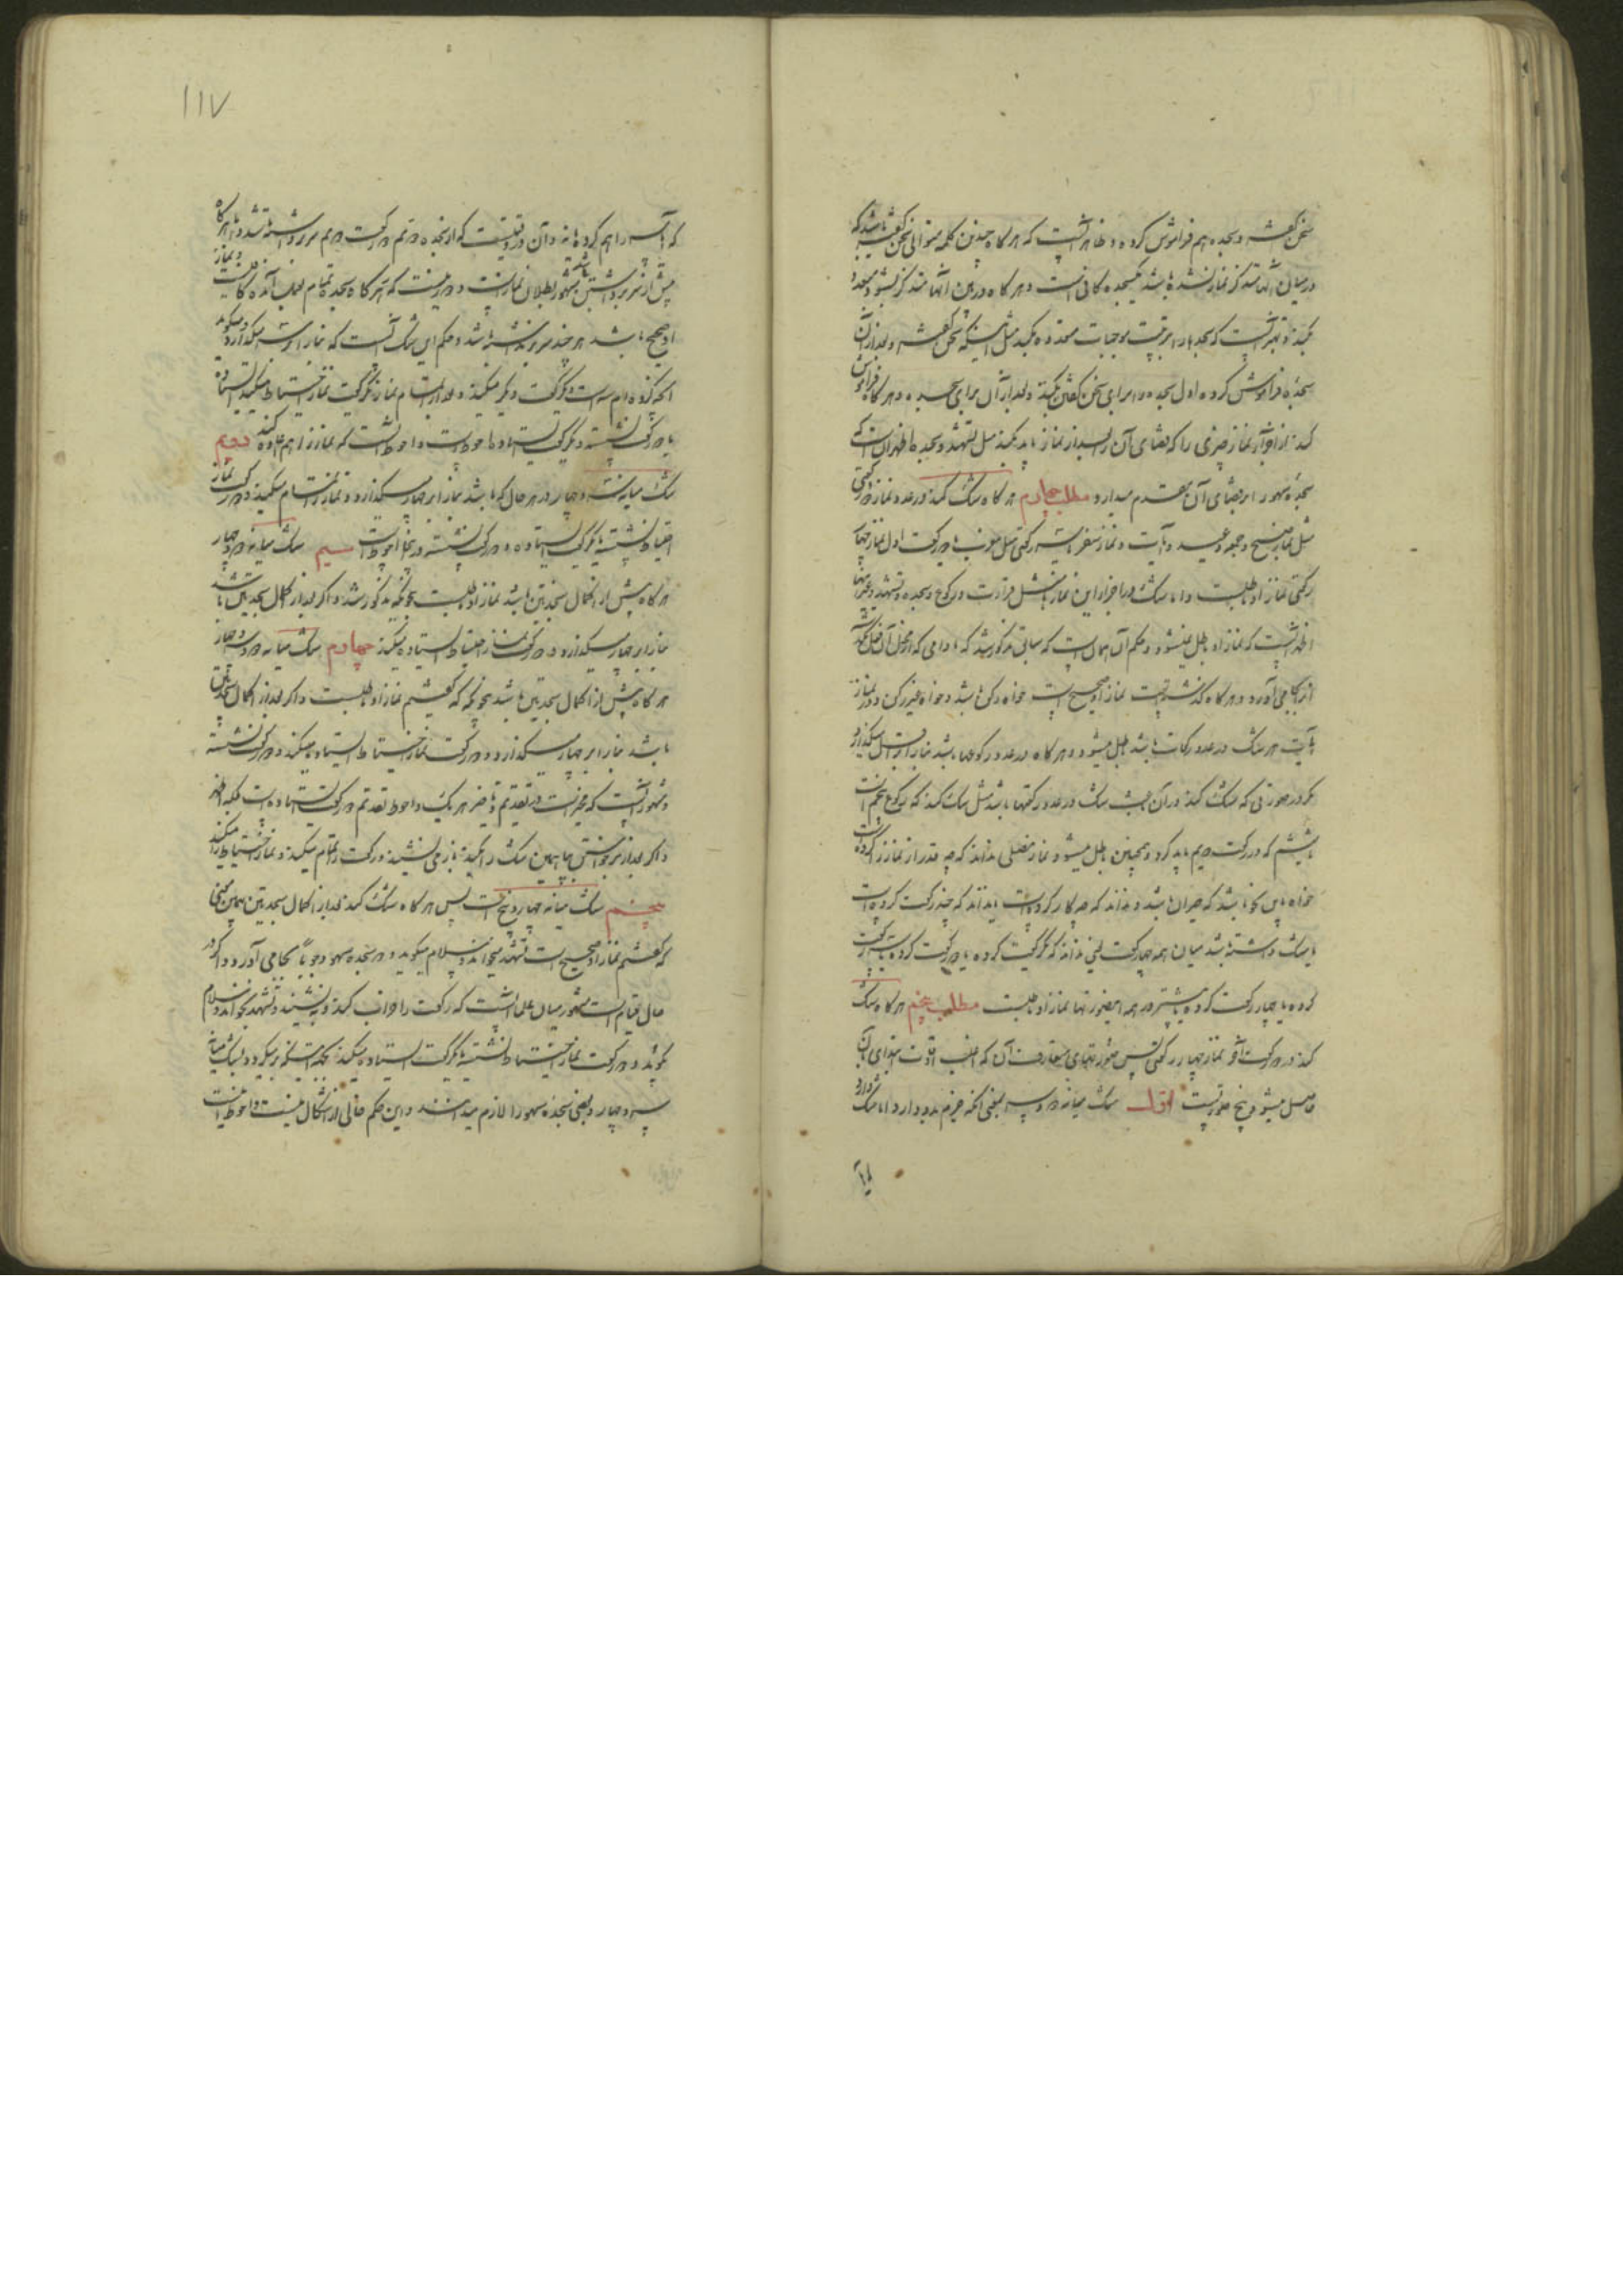 سخن گفته و سجده هم فراموش کرده و ظاهر آنست که هرگاه چندین کلمه متوالی سخن گفته باشد که
در میان آنها متذکر نماز نشده باشد یک سجده کافی است و هرگاه در بین آنها متذکر بشود متعدد
بکند و بهتر آنست که سجدها را بترتیب موجبات متعدده بکند مثل اینکه سخن گفته و بعد از آن
سجده فراموش کرده اول سجده را برای سخن گفتن بکند و بعد از آن برای سجده و هرگاه فراموش
کند از اجزاء نماز چیزی را که قضای آن را بعد از نماز باید بکند مثل تشهد و سجده اظهر آن است که
سجده سهو را بر قضای آن مقدم ندارد مطلب چهارم هرگاه شک کند در عدد نماز دو رکعتی
مثل نماز صبح و جمعه و عید و آیات و نماز سفر یا سه رکعتی مثل مغرب یا دو رکعت اول نماز چهار
رکعتی نماز او باطلست و اما شک در اجزاء این نمازها مثل قرائت و رکوع و سجده و تشهد و غیر اینها
اظهر آنست که نماز او باطل نمیشود و حکم آن همان است که سابق مذکور شد که مادامی که از محل آن نگذشته
آنرا بجا می آورد و هرگاه گذشته است نماز او صحیح است خواه رکن باشد و خواه غیر رکن و در نماز
آیات هر شک در عدد رکعات باشد باطل میشود و هرگاه در عدد رکوعها باشد بنا را بر اقل میگذارد
مگر در صورتی که شک کند در آن باعث شک در عدد رکعتها باشد مثل شک کند که رکوع پنجم است
یا ششم که در رکعت دویم باید کرد و همچنین باطل میشود نماز مصلی نداند که چه قدر از نماز را کرده است
خواه باین نحو باشد که حیران باشد و نداند که چه کار کرده است یا نداند که چند رکعت کرده است
یا شک داشته باشد میان همه چهار رکعت یعنی نداند که یک رکعت کرده یا دو رکعت کرده یا سه رکعت
کرده یا چهار رکعت کرده یا بیشتر در همه این صورتها نماز او باطلست مطلب پنجم هرگاه شک
کند در دو رکعت آخر نماز چهار رکعتی پس صورتهای متعارف آن که اغلب اوقات ابتلای بآن
حاصل میشود پنج صورتست اول شک میانه دو و سه یعنی آنکه جزم بدو دارد اما شک دارد
یا
۱۱۷
که آیا سه را هم کرده یا نه و آن در وقتیست که از سجده دویم رکعت دویم سر برداشته باشد و هرگاه
پیش از سر برداشتن باشد مشهور بطلان نماز است و دور نیست که هرگاه سجده تمام بعمل آمده کافیست و نماز
او صحیح باشد هر چند سر بر نداشته باشد و حکم این شک آنست که بنا را بر سه میگذارد و میگوید
آنچه کرده ام سه است و یک رکعت دیگر میکند و بعد از تمام نماز یک رکعت نماز احتیاط میکند ایستاده
یا دو رکعت نشسته و یک رکعت ایستاده احوط است و احوط آنست که نماز را هم اعاده کند دویم
شک میانه سه و چهار در هر حال که باشد بنا را بر چهار میگذارد و نماز را تمام میکند و دو رکعت نماز
احتیاط نشسته یا یک رکعت ایستاده و دو رکعت نشسته در اینجا احوط است سیم شک میانه دو و چهار
هرگاه پیش از اکمال سجدتین باشد نماز او باطلست بنحویکه مذکور شد و اگر بعد از اکمال سجدتین باشد
بنا را بر چهار میگذارد و دو رکعت نماز احتیاط ایستاده میکند چهارم شک میانه دو و سه و چهار
هرگاه پیش از اکمال سجدتین باشد بنحویکه گفتیم نماز او باطلست و اگر بعد از اکمال سجدتین
باشد بنا را بر چهار میگذارد و دو رکعت نماز احتیاط ایستاده میکند و دو رکعت نشسته
و مشهور آنست که مخیر است در تقدیم و تاخیر هر یک و احوط تقدیم دو رکعت ایستاده است بلکه اظهر
و اگر بعد از برخاستن میانه این شک را بکند باز می نشیند و رکعت را تمام میکند و نماز احتیاط را میکند
پنجم شک میانه چهار و پنج است پس هرگاه شک کند بعد از اکمال سجدتین بهمین نحو
که گفتیم نماز او صحیح است تشهد میخواند و سلام میگوید و دو سجده سهو وجوباً بجا می آورد و اگر در
حال قیام است مشهور میان علما آنست که رکعت را خراب کند و بنشیند و تشهد بخواند و سلام
بگوید و دو رکعت نماز احتیاط نشسته یا یک رکعت ایستاده میکند بجهت اینکه بر میگردد بشک میانه
سه و چهار و بعضی سجده سهو را لازم میدانند و این حکم خالی از اشکال نیست و احوط آنست